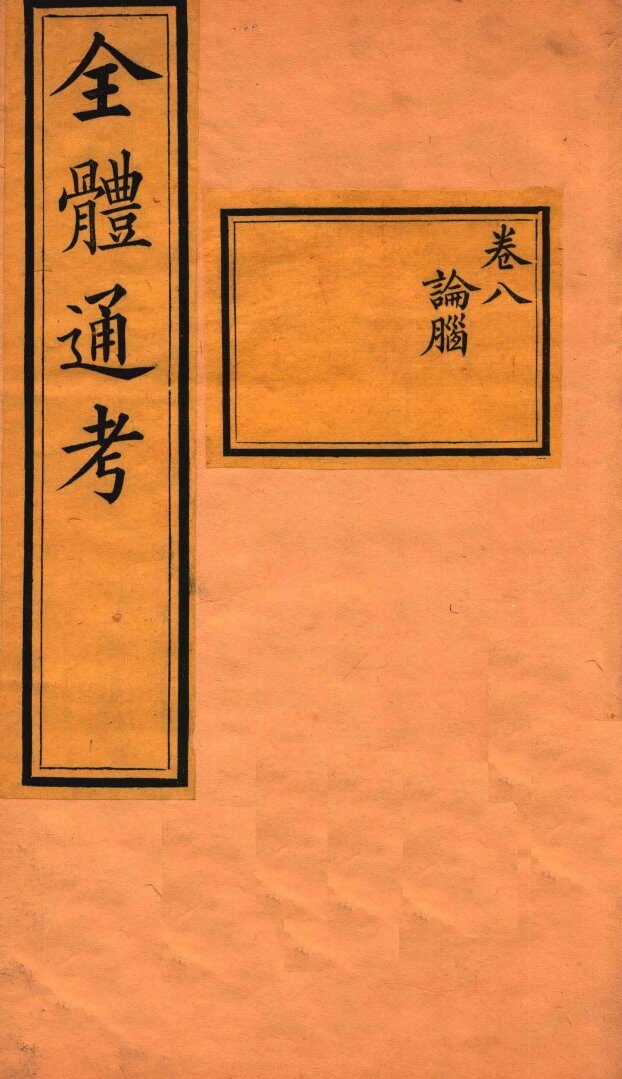 全體通考
卷八
論腦